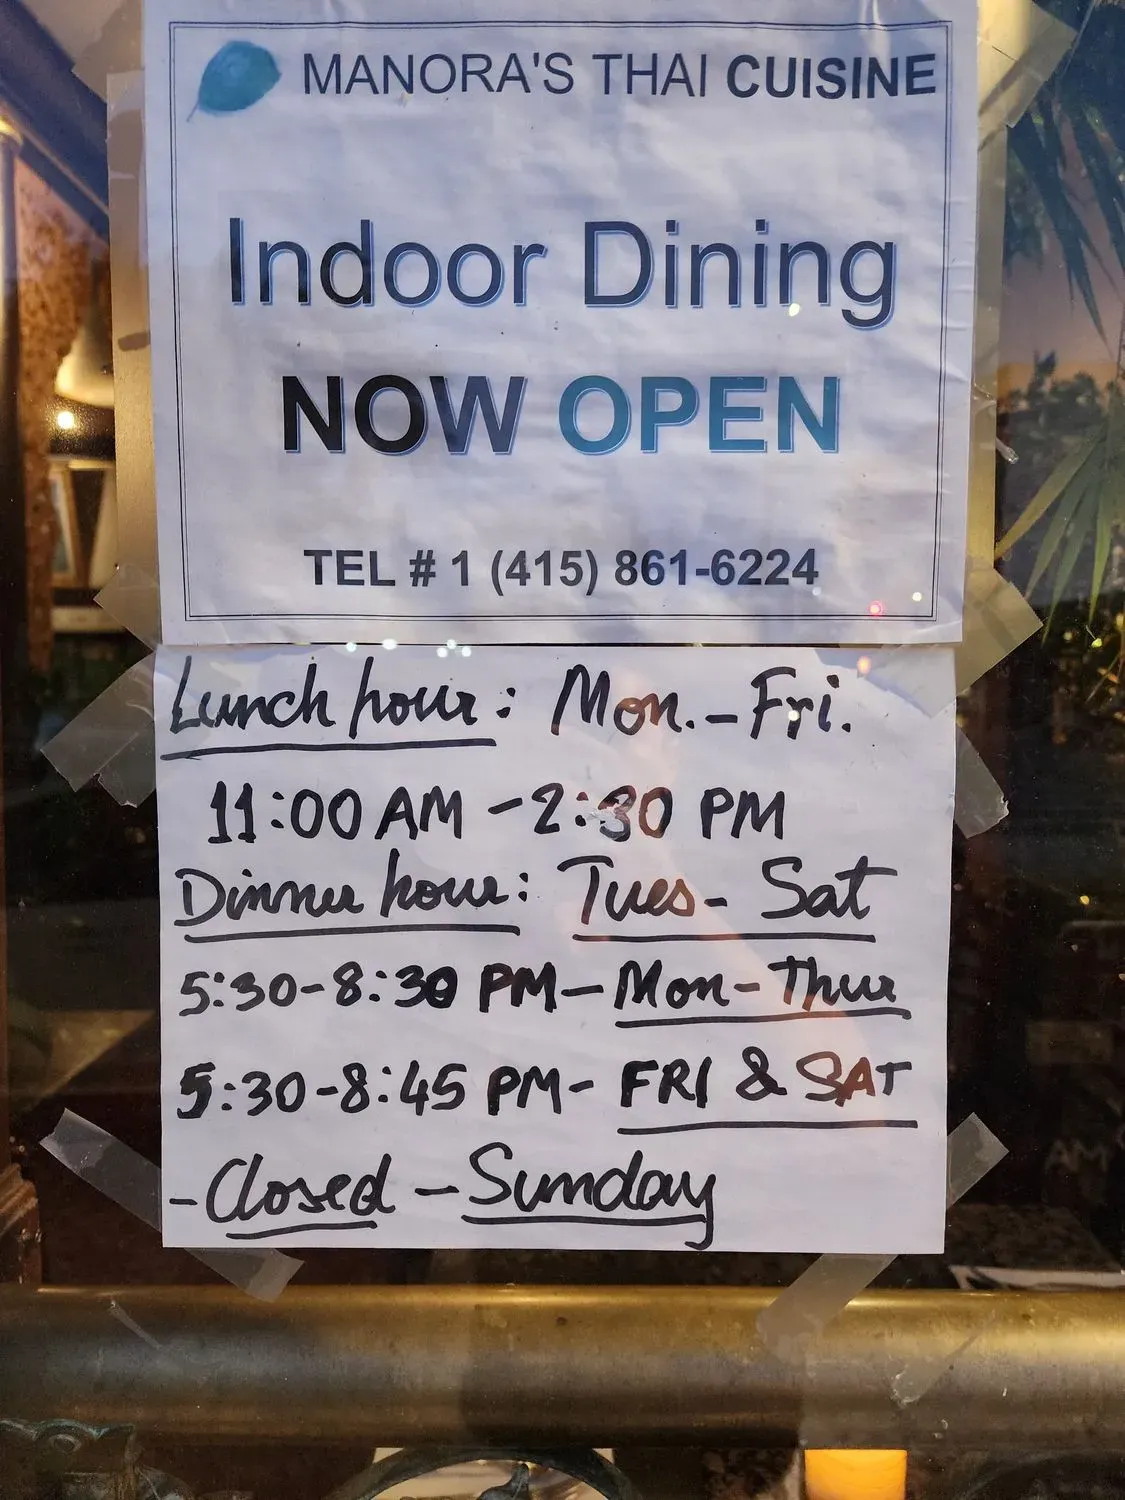 MANORA'S THAI CUISINE
Indoor Dining
NOW OPEN
TEL # 1 (415) 861-6224
Lunch hour: Mon.-Fri.
11:00 AM - 2:30 PM
Dinner hour: Tues- Sat
5:30-8:30 PM-Mon-Thur
5:30-8:45 PM- FRI & SAT
-Closed - Sunday